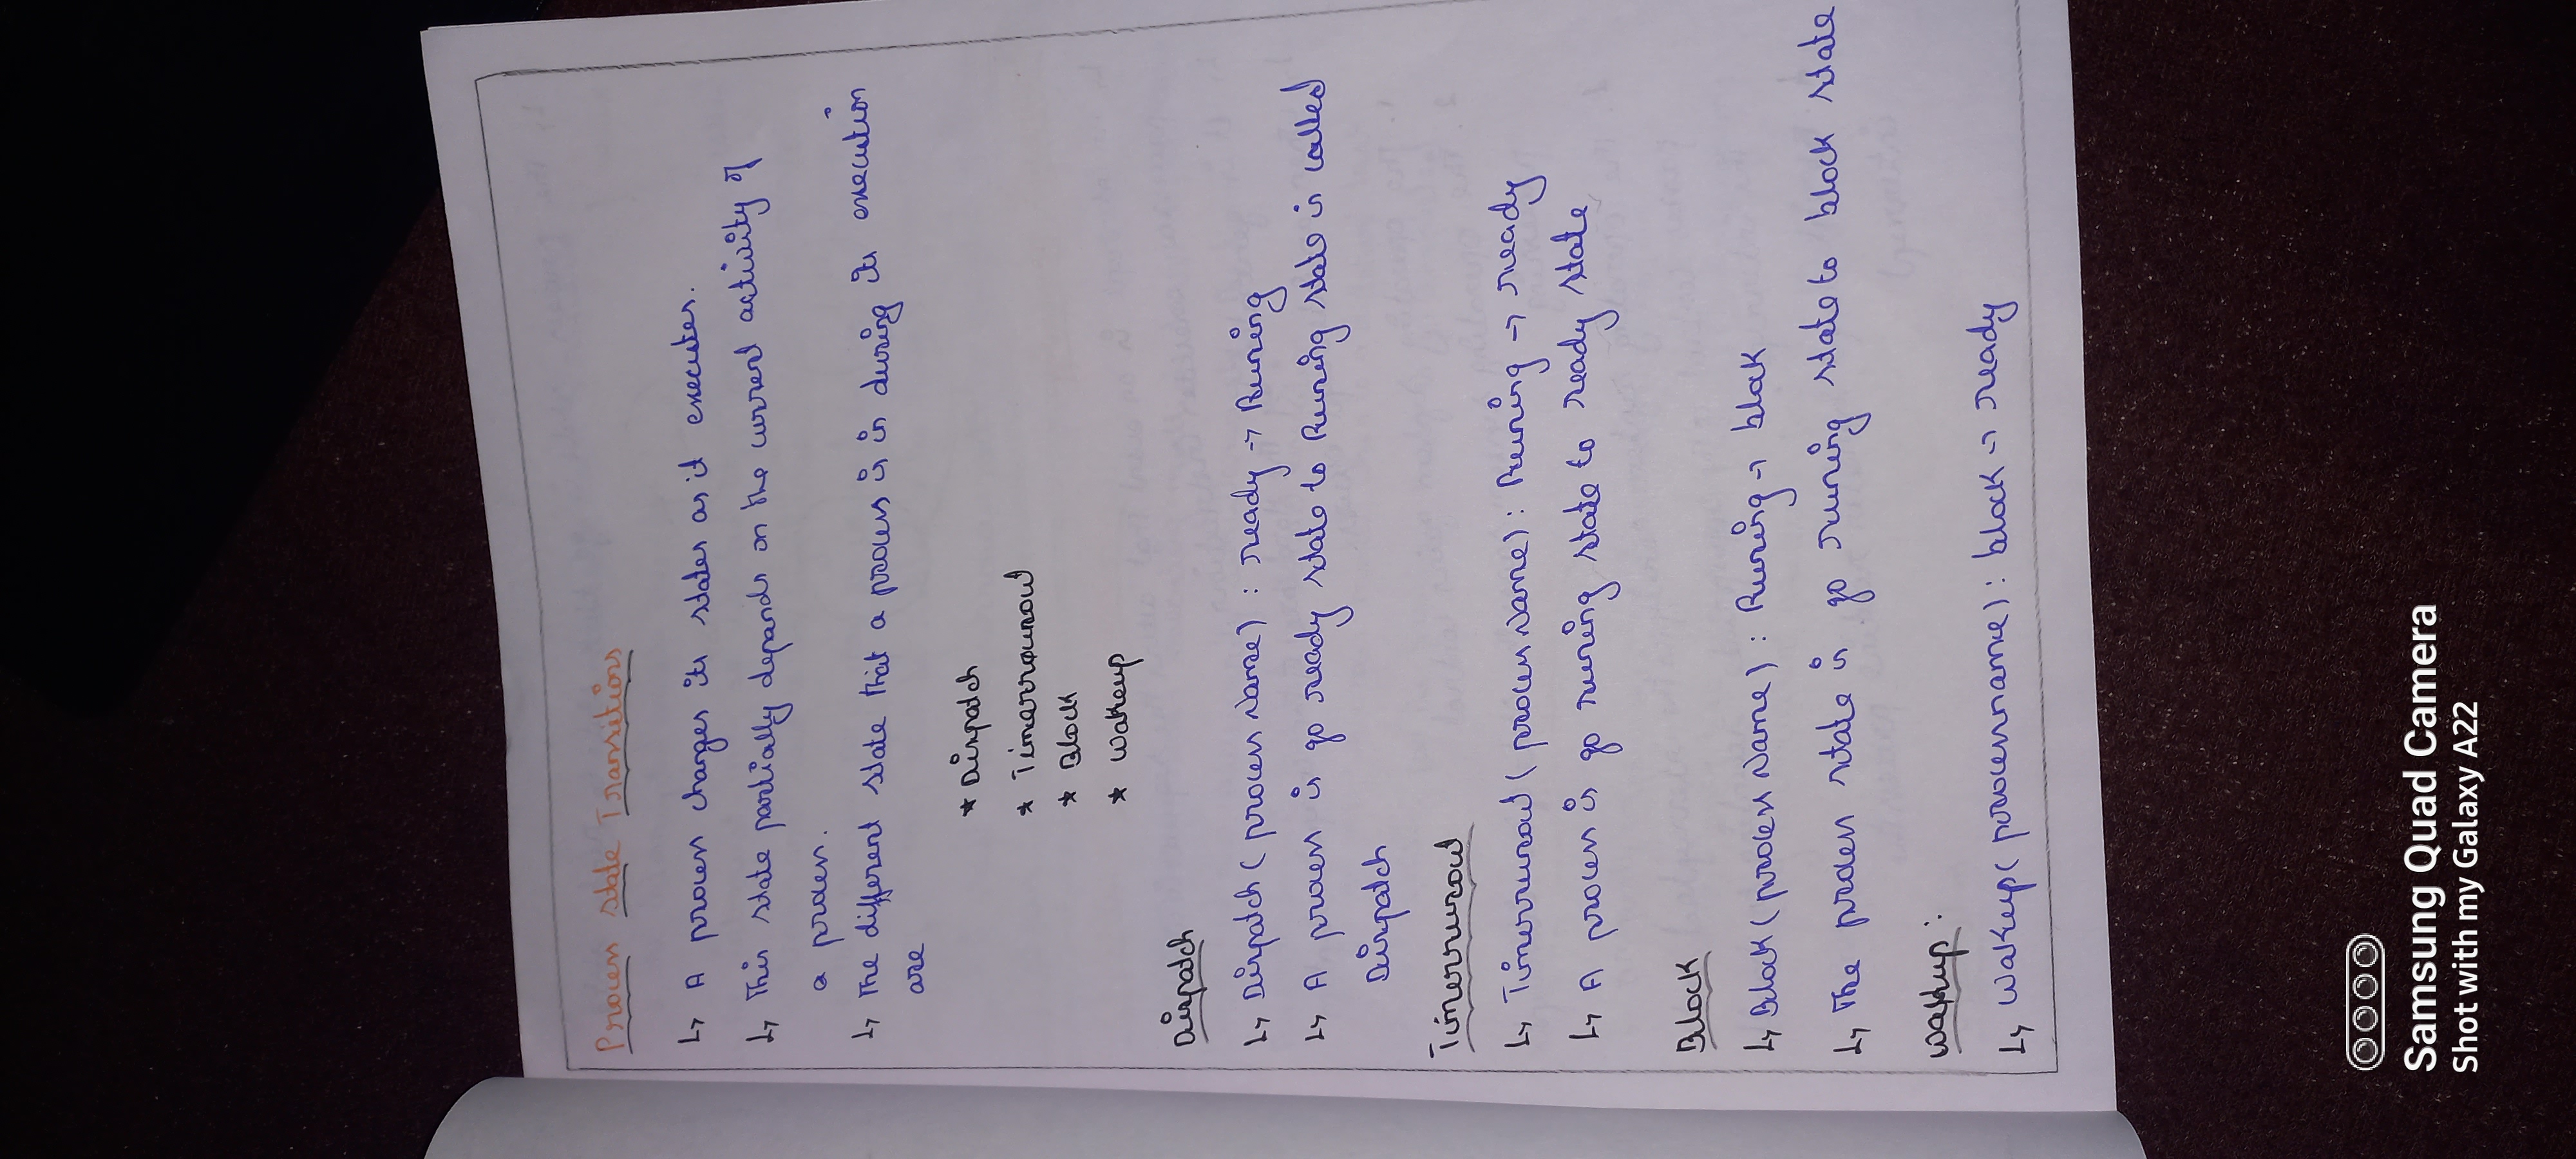 Process state Transitions
↳ A process changes its states as it executes.
↳ This state partially depends on the current activity of
a process.
↳ The different state that a process is in during its execution
are
* Dispatch
* Timerrounout
* Block
* Wakeup
Dispatch
↳ Dispatch ( process Name ) : ready → Runing
↳ A process is go ready state to Runing state is called
Dispatch
Timerrunout
↳ Timerrunout ( process Name ) : Runing → ready
↳ A process is go runing state to ready state
Block
↳ Block ( process Name ) : Runing → block
↳ The process state is go runing state to block state
Wakeup :
↳ Wakeup ( processname ) : block → ready
Samsung Quad Camera
Shot with my Galaxy A22